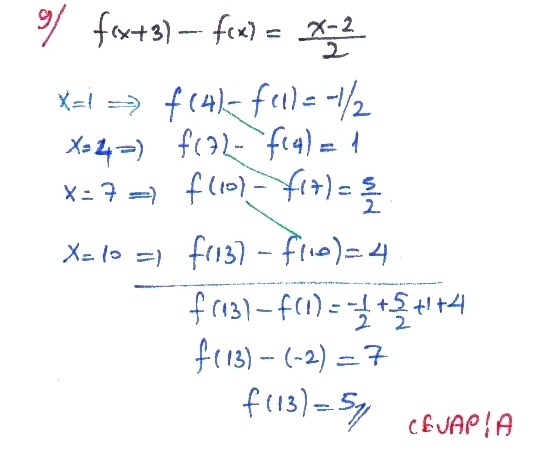 9/ f(x+3) - f(x) = \frac{x-2}{2}
x=1 => f(4) - f(1) = -1/2
x=4 => f(7) - f(4) = 1
x=7 => f(10) - f(7) = \frac{5}{2}
x=10 => f(13) - f(10) = 4
f(13) - f(1) = -\frac{1}{2} + \frac{5}{2} + 1 + 4
f(13) - (-2) = 7
f(13) = 5//
CEVAP/A